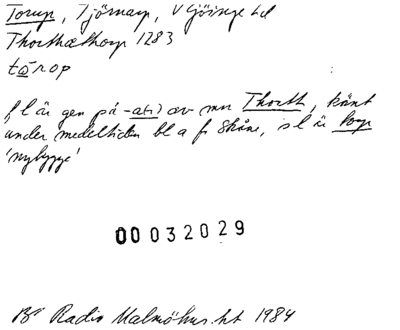 Torup, Tjörnarp, V Göinge hd
Thorthæthorp 1283
tårop
f l är gen på -a(r) av mn Thorth, känt
under medeltiden bl a fr Skåne, s l är torp
'nybygge'
00032029
Br Radio Malmöhus ht 1984